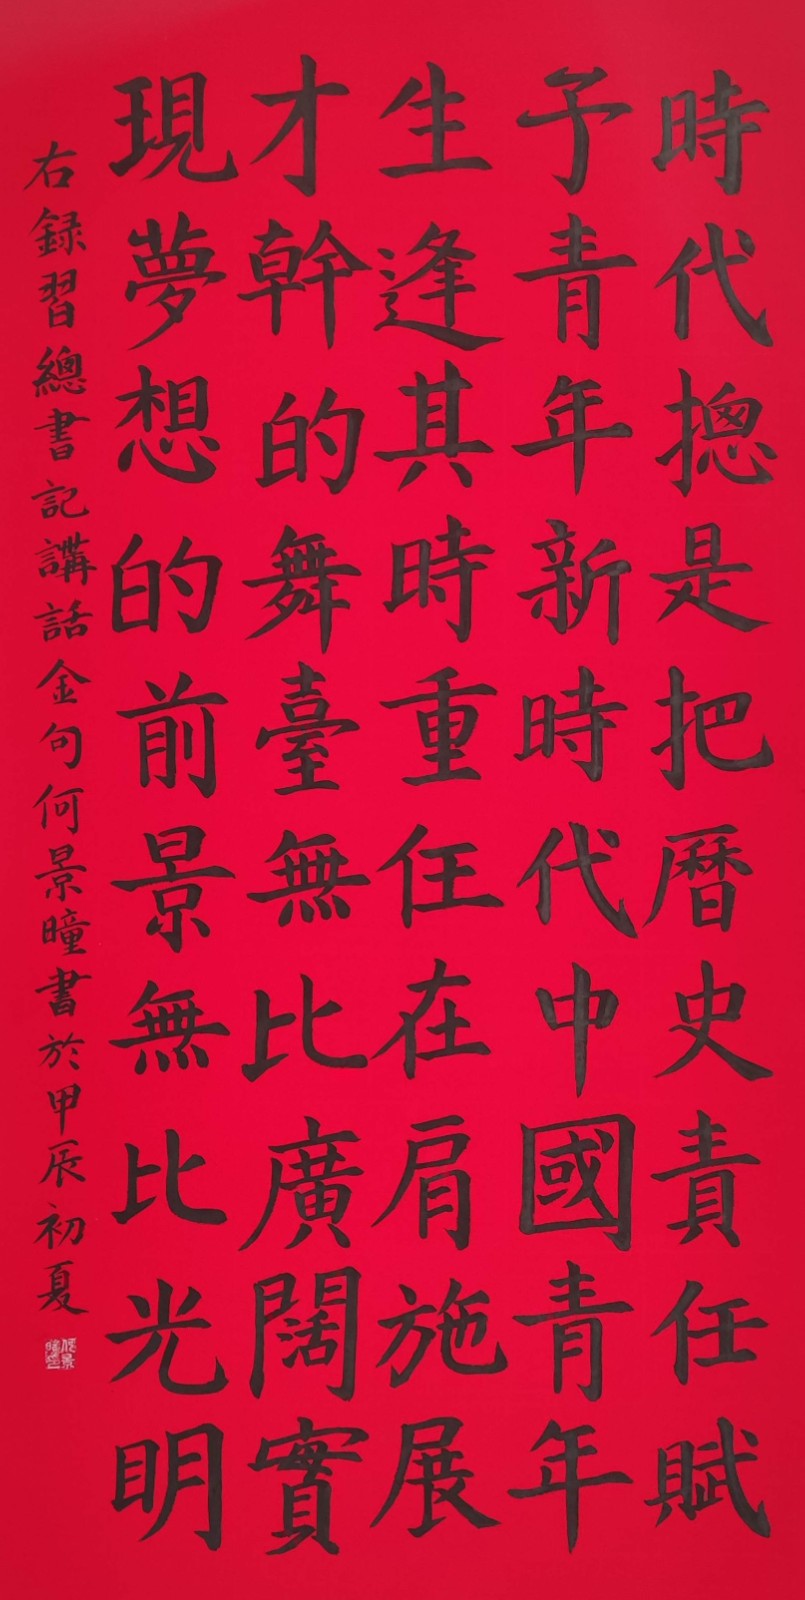 時代摠是把曆史責任賦
予青年新時代中國青年
生逢其時重任在肩施展
才幹的舞臺無比廣闊實
現夢想的前景無比光明
右録習總書記講話金句何景曈書於甲辰初夏